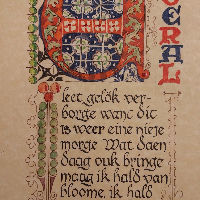 OERAL
leet gelök ver-
borge want dit
is weer eine nieje
morge Wat daen
daag ouk bringe
maag ik hald van
bloome, ik hald